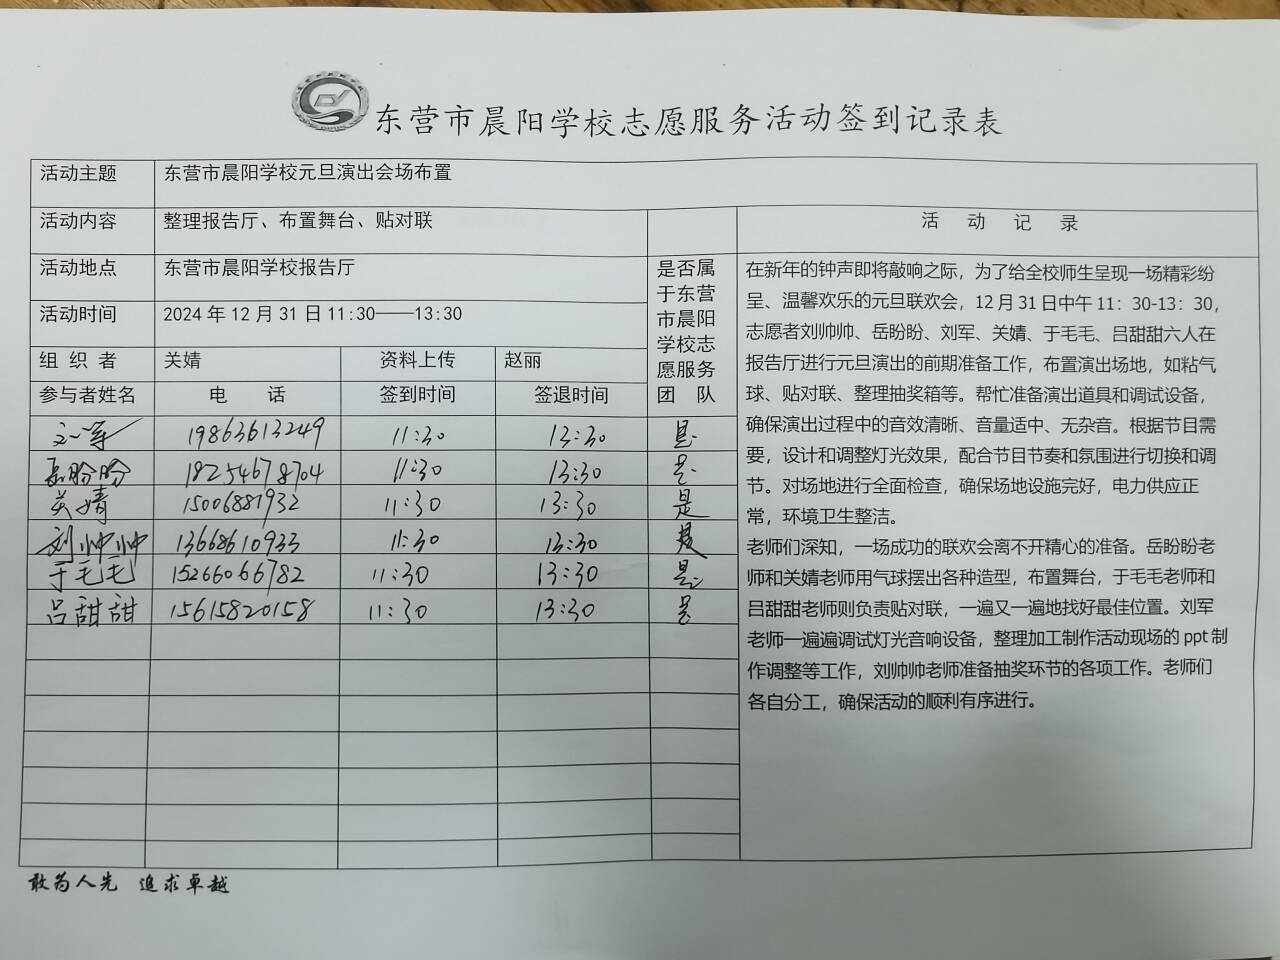 东营市晨阳学校志愿服务活动签到记录表
活动主题 东营市晨阳学校元旦演出会场布置
活动内容 整理报告厅、布置舞台、贴对联
活动记录
活动地点 东营市晨阳学校报告厅
活动时间 2024年12月31日11:30——13:30
组织者 关婧 资料上传 赵丽
是否属
于东营
市晨阳
学校志
愿服务
团队
参与者姓名 电话 签到时间 签退时间
刘军 19863613249 11:30 13:30 是
岳盼盼 18254678704 11:30 13:30 是
关婧 15006881932 11:30 13:30 是
刘帅帅 13668610933 11:30 13:30 是
于毛毛 15266066782 11:30 13:30 是
吕甜甜 15615820158 11:30 13:30 是
在新年的钟声即将敲响之际，为了给全校师生呈现一场精彩纷
呈、温馨欢乐的元旦联欢会，12月31日中午11：30-13：30，
志愿者刘帅帅、岳盼盼、刘军、关婧、于毛毛、吕甜甜六人在
报告厅进行元旦演出的前期准备工作，布置演出场地，如粘气
球、贴对联、整理抽奖箱等。帮忙准备演出道具和调试设备，
确保演出过程中的音效清晰、音量适中、无杂音。根据节目需
要，设计和调整灯光效果，配合节目节奏和氛围进行切换和调
节。对场地进行全面检查，确保场地设施完好，电力供应正
常，环境卫生整洁。
老师们深知，一场成功的联欢会离不开精心的准备。岳盼盼老
师和关婧老师用气球摆出各种造型，布置舞台，于毛毛老师和
吕甜甜老师则负责贴对联，一遍又一遍地找好最佳位置。刘军
老师一遍遍调试灯光音响设备，整理加工制作活动现场的ppt制
作调整等工作，刘帅帅老师准备抽奖环节的各项工作。老师们
各自分工，确保活动的顺利有序进行。
敢为人先 追求卓越